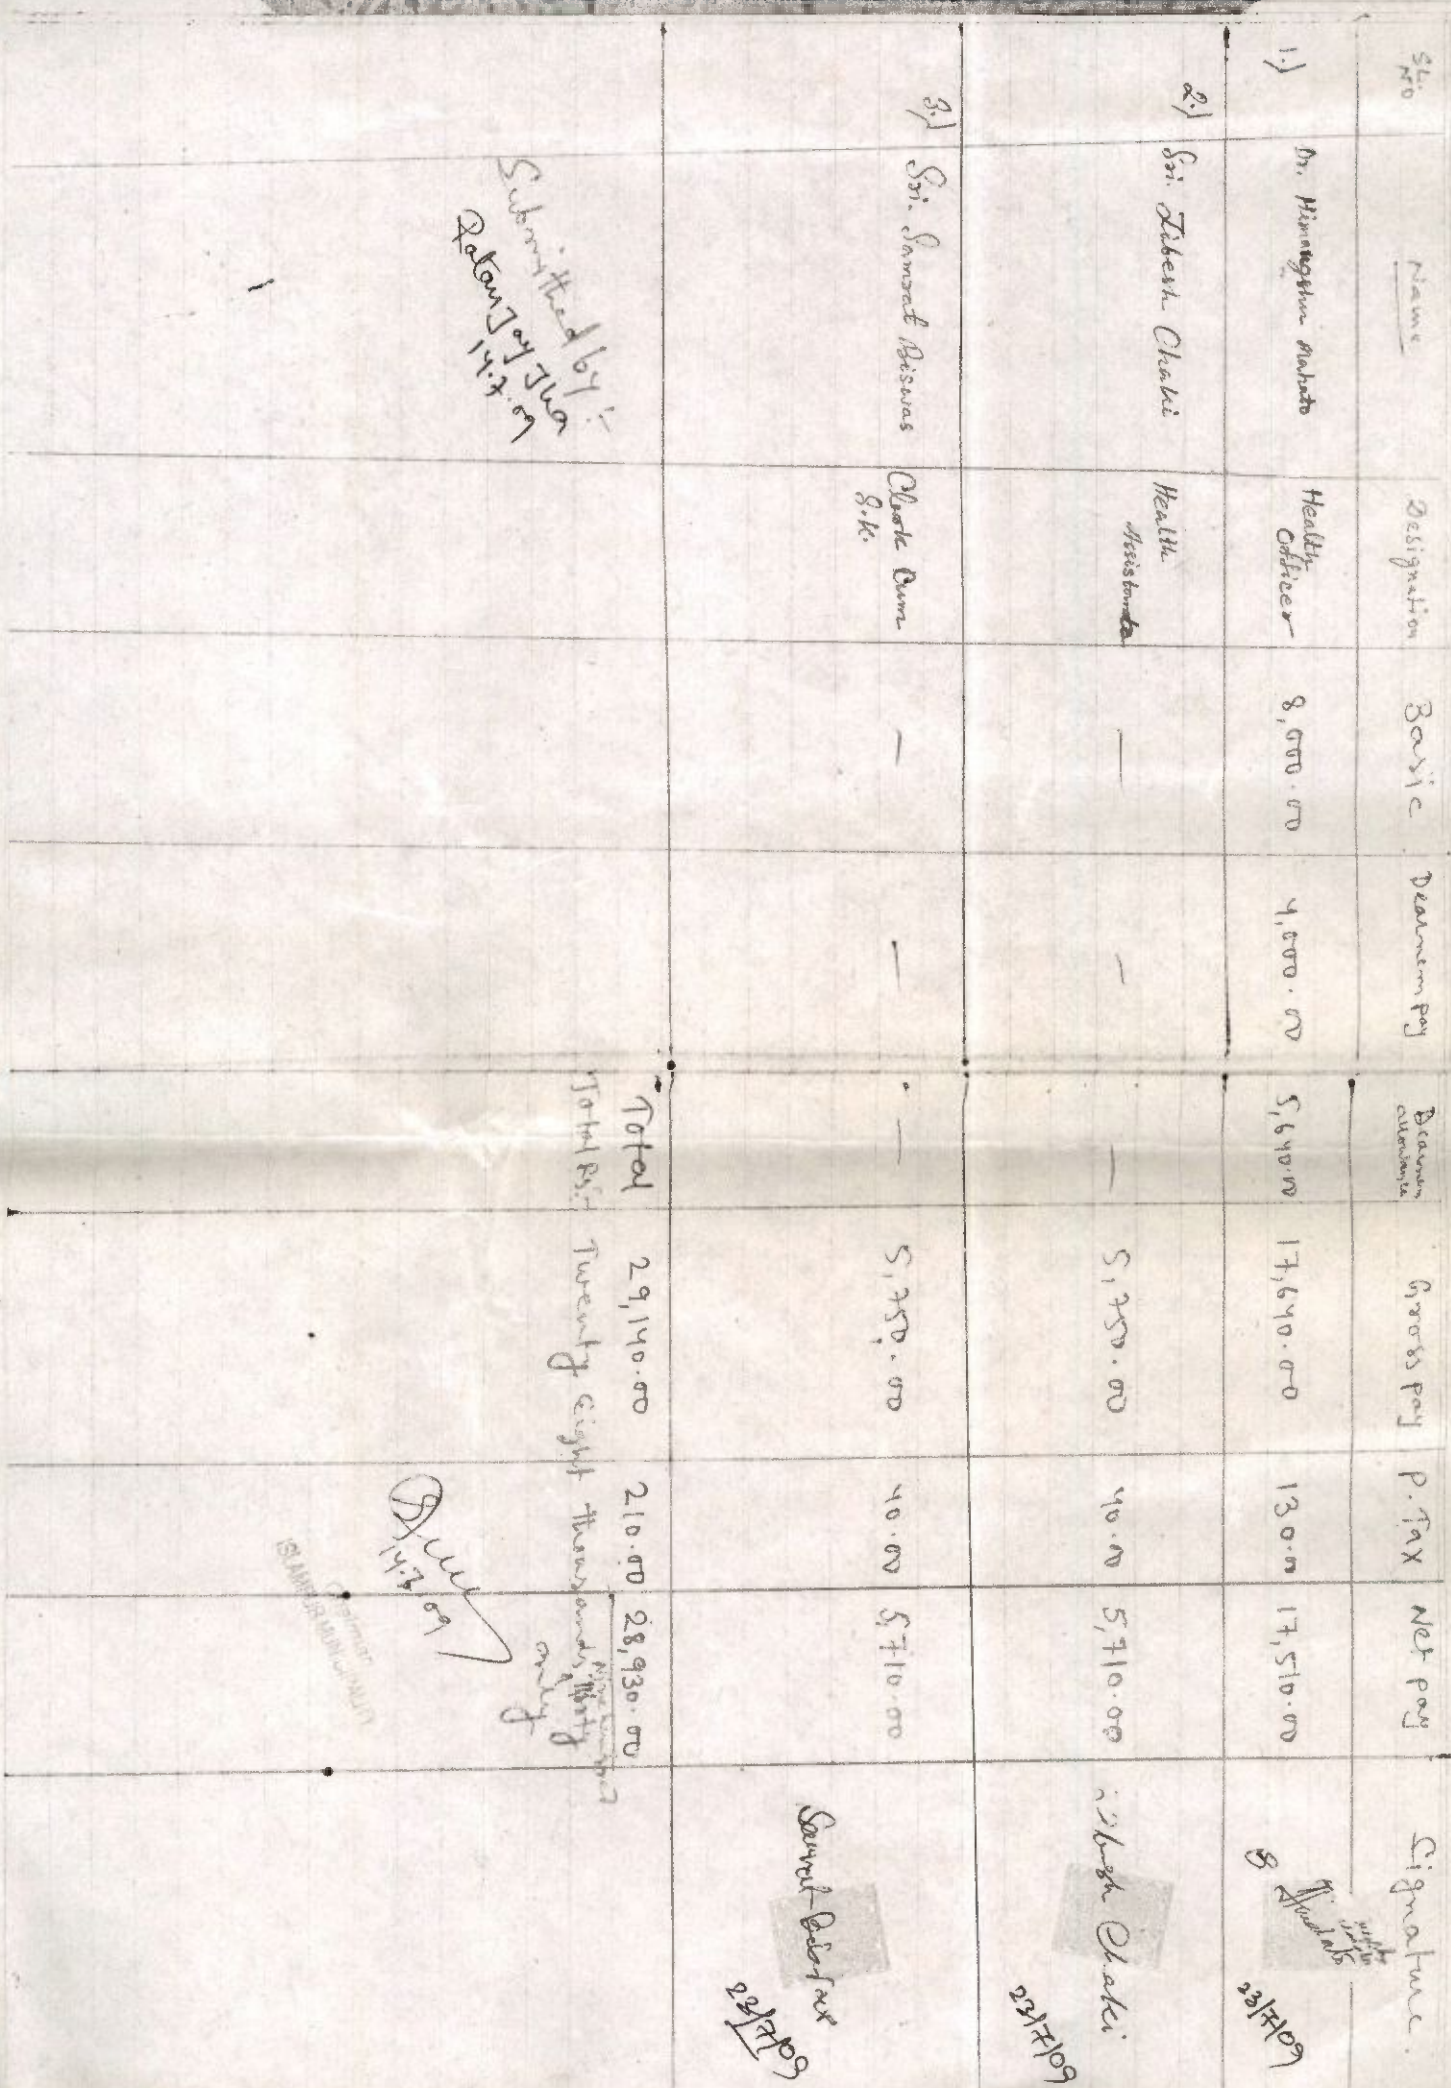 SL. NO Name Designation Basic Dearnem pay Dearnem allowance Gross pay P. Tax Net pay Signature.
1.) Dr. Himangshu Mahato Health Officer 8,000.00 4,000.00 5,640.00 17,640.00 130.00 17,510.00 23/7/09
2.) Sri. Dibesh Chaki Health 5,750.00 40.00 5,710.00 Dibesh Chaki 23/7/09
3.) Sri. Samrat Biswas Clerk Cum S.K. — — — 5,750.00 40.00 5,710.00 Samrat Biswas 23/7/09
Total 29,140.00 210.00 28,930.00
Total Rs:- Twenty Eight thousands, Nine hundred thirty only
Submitted by :-
Ratan Jay Jha
14.7.09
14.7.09
Chairman
ISLAMPUR MUNICIPALITY